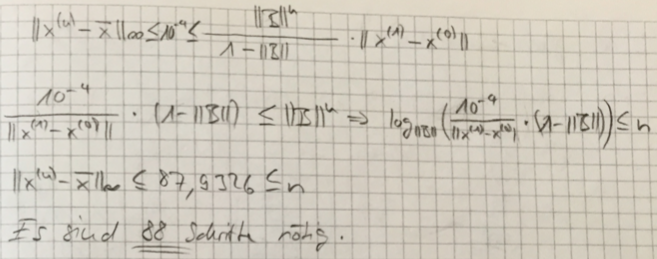 ||x⁽ⁿ⁾ - x̄||∞ ≤ 10⁻⁴ ≤ ||B||ⁿ / (1 - ||B||) · ||x⁽¹⁾ - x⁽⁰⁾||
10⁻⁴ / ||x⁽¹⁾ - x⁽⁰⁾|| · (1 - ||B||) ≤ ||B||ⁿ ⇒ log_||B|| (10⁻⁴ / ||x⁽¹⁾ - x⁽⁰⁾| · (1 - ||B||)) ≤ n
||x⁽ⁿ⁾ - x̄||∞ ≤ 87,9326 ≤ n
Es sind 88 Schritte nötig.